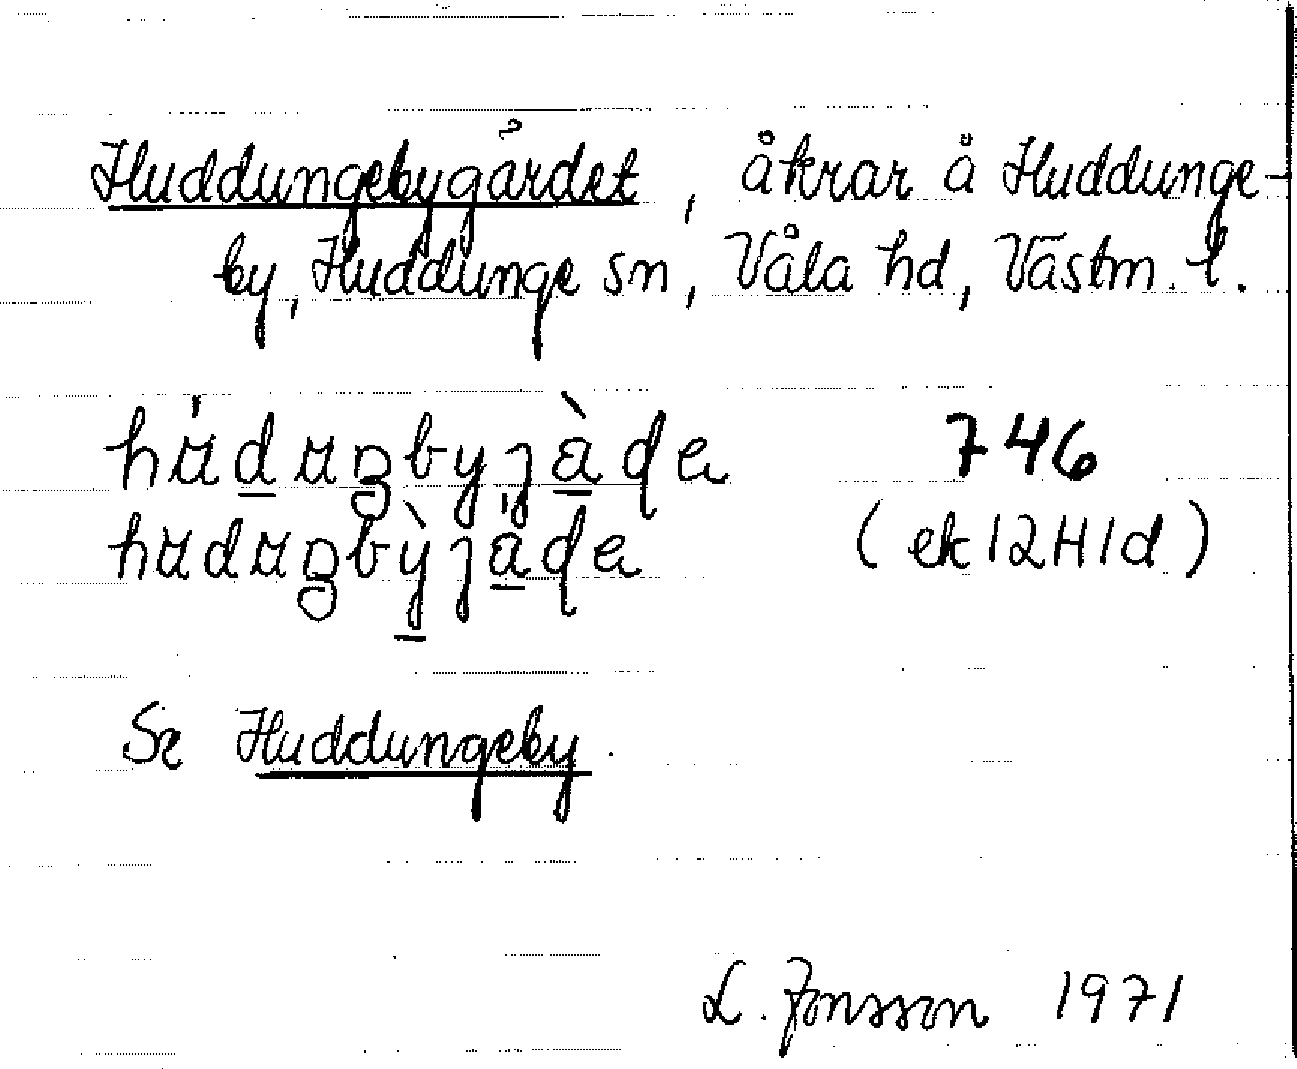 Huddungebygärdet, åkrar å Huddunge-
by, Huddunge sn, Våla hd, Västm. l.
746
(ek 12H1d)
Se Huddungeby.
L. Jonsson 1971